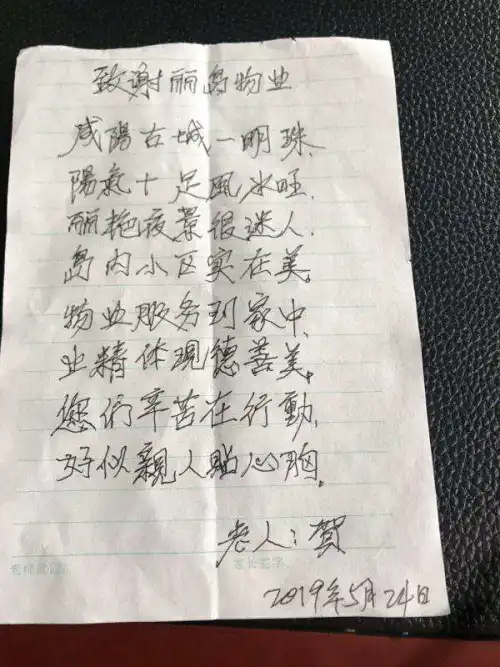 致谢丽岛物业
咸陽古城一明珠.
陽氣十足風水旺.
丽艳夜景很迷人.
岛内小区实在美.
物业服务到家中.
业精体现德善美.
您們辛苦在行動.
好似親人貼心胸.
老人:賀
家长签字
2019年5月24日